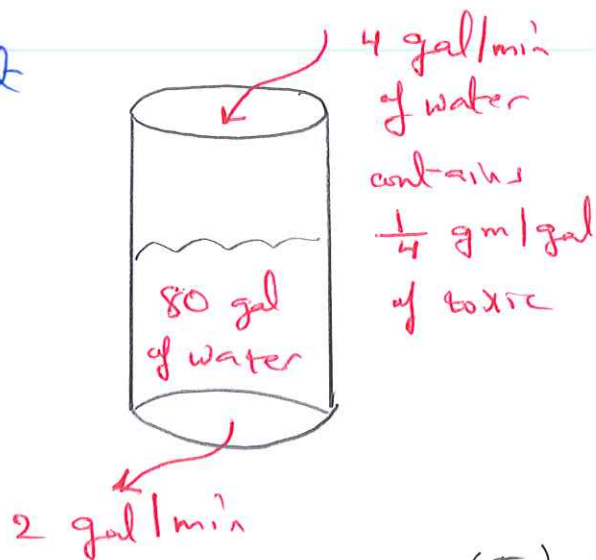 4 gal/min
of water
contains
1/4 gm/gal
of toxic
80 gal
of water
2 gal/min